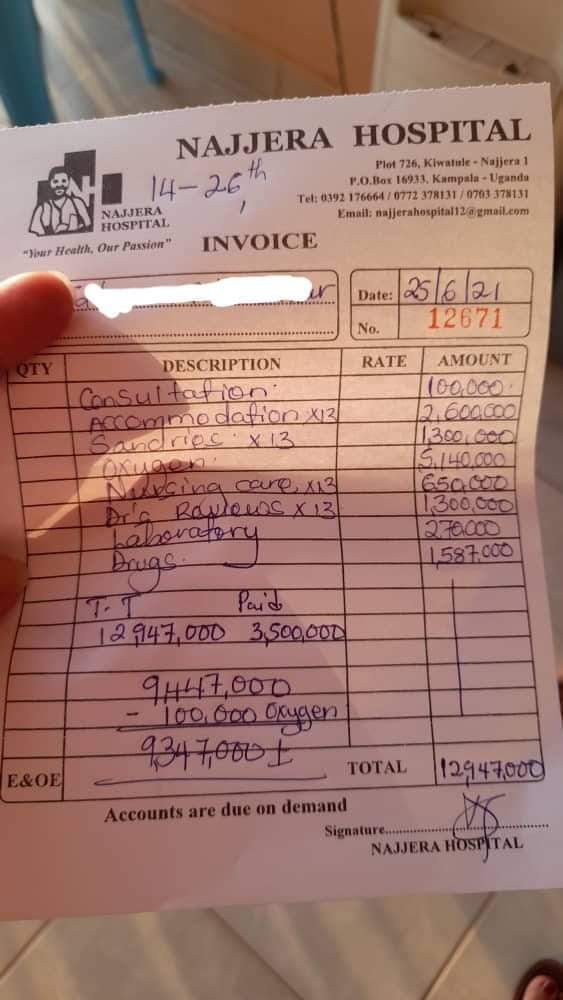 NAJJERA HOSPITAL
Plot 726, Kiwatule - Najjera 1
P.O.Box 16933, Kampala - Uganda
Tel: 0392 176664 / 0772 378131 / 0703 378131
Email: najjerahospital12@gmail.com
14-26th
NH
NAJJERA
HOSPITAL
"Your Health, Our Passion"
INVOICE
Date: 25/6/21
No. 12671
QTY DESCRIPTION RATE AMOUNT
Consultation 100,000
Accommodation x13 2,600,000
Sandries x 13 1,300,000
Oxygen 5,140,000
Nursing care x13 650,000
Dr's Reviews x 13 1,300,000
Laboratory 270,000
Drugs 1,587,000
T.T Paid
12,947,000 3,500,000
9447,000
- 100,000 Oxygen
9,347,000
E&OE TOTAL 12,947,000
Accounts are due on demand
Signature
NAJJERA HOSPITAL